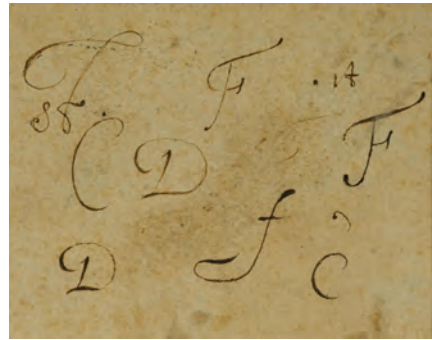 F F . 18
58 .
C D F
D f C